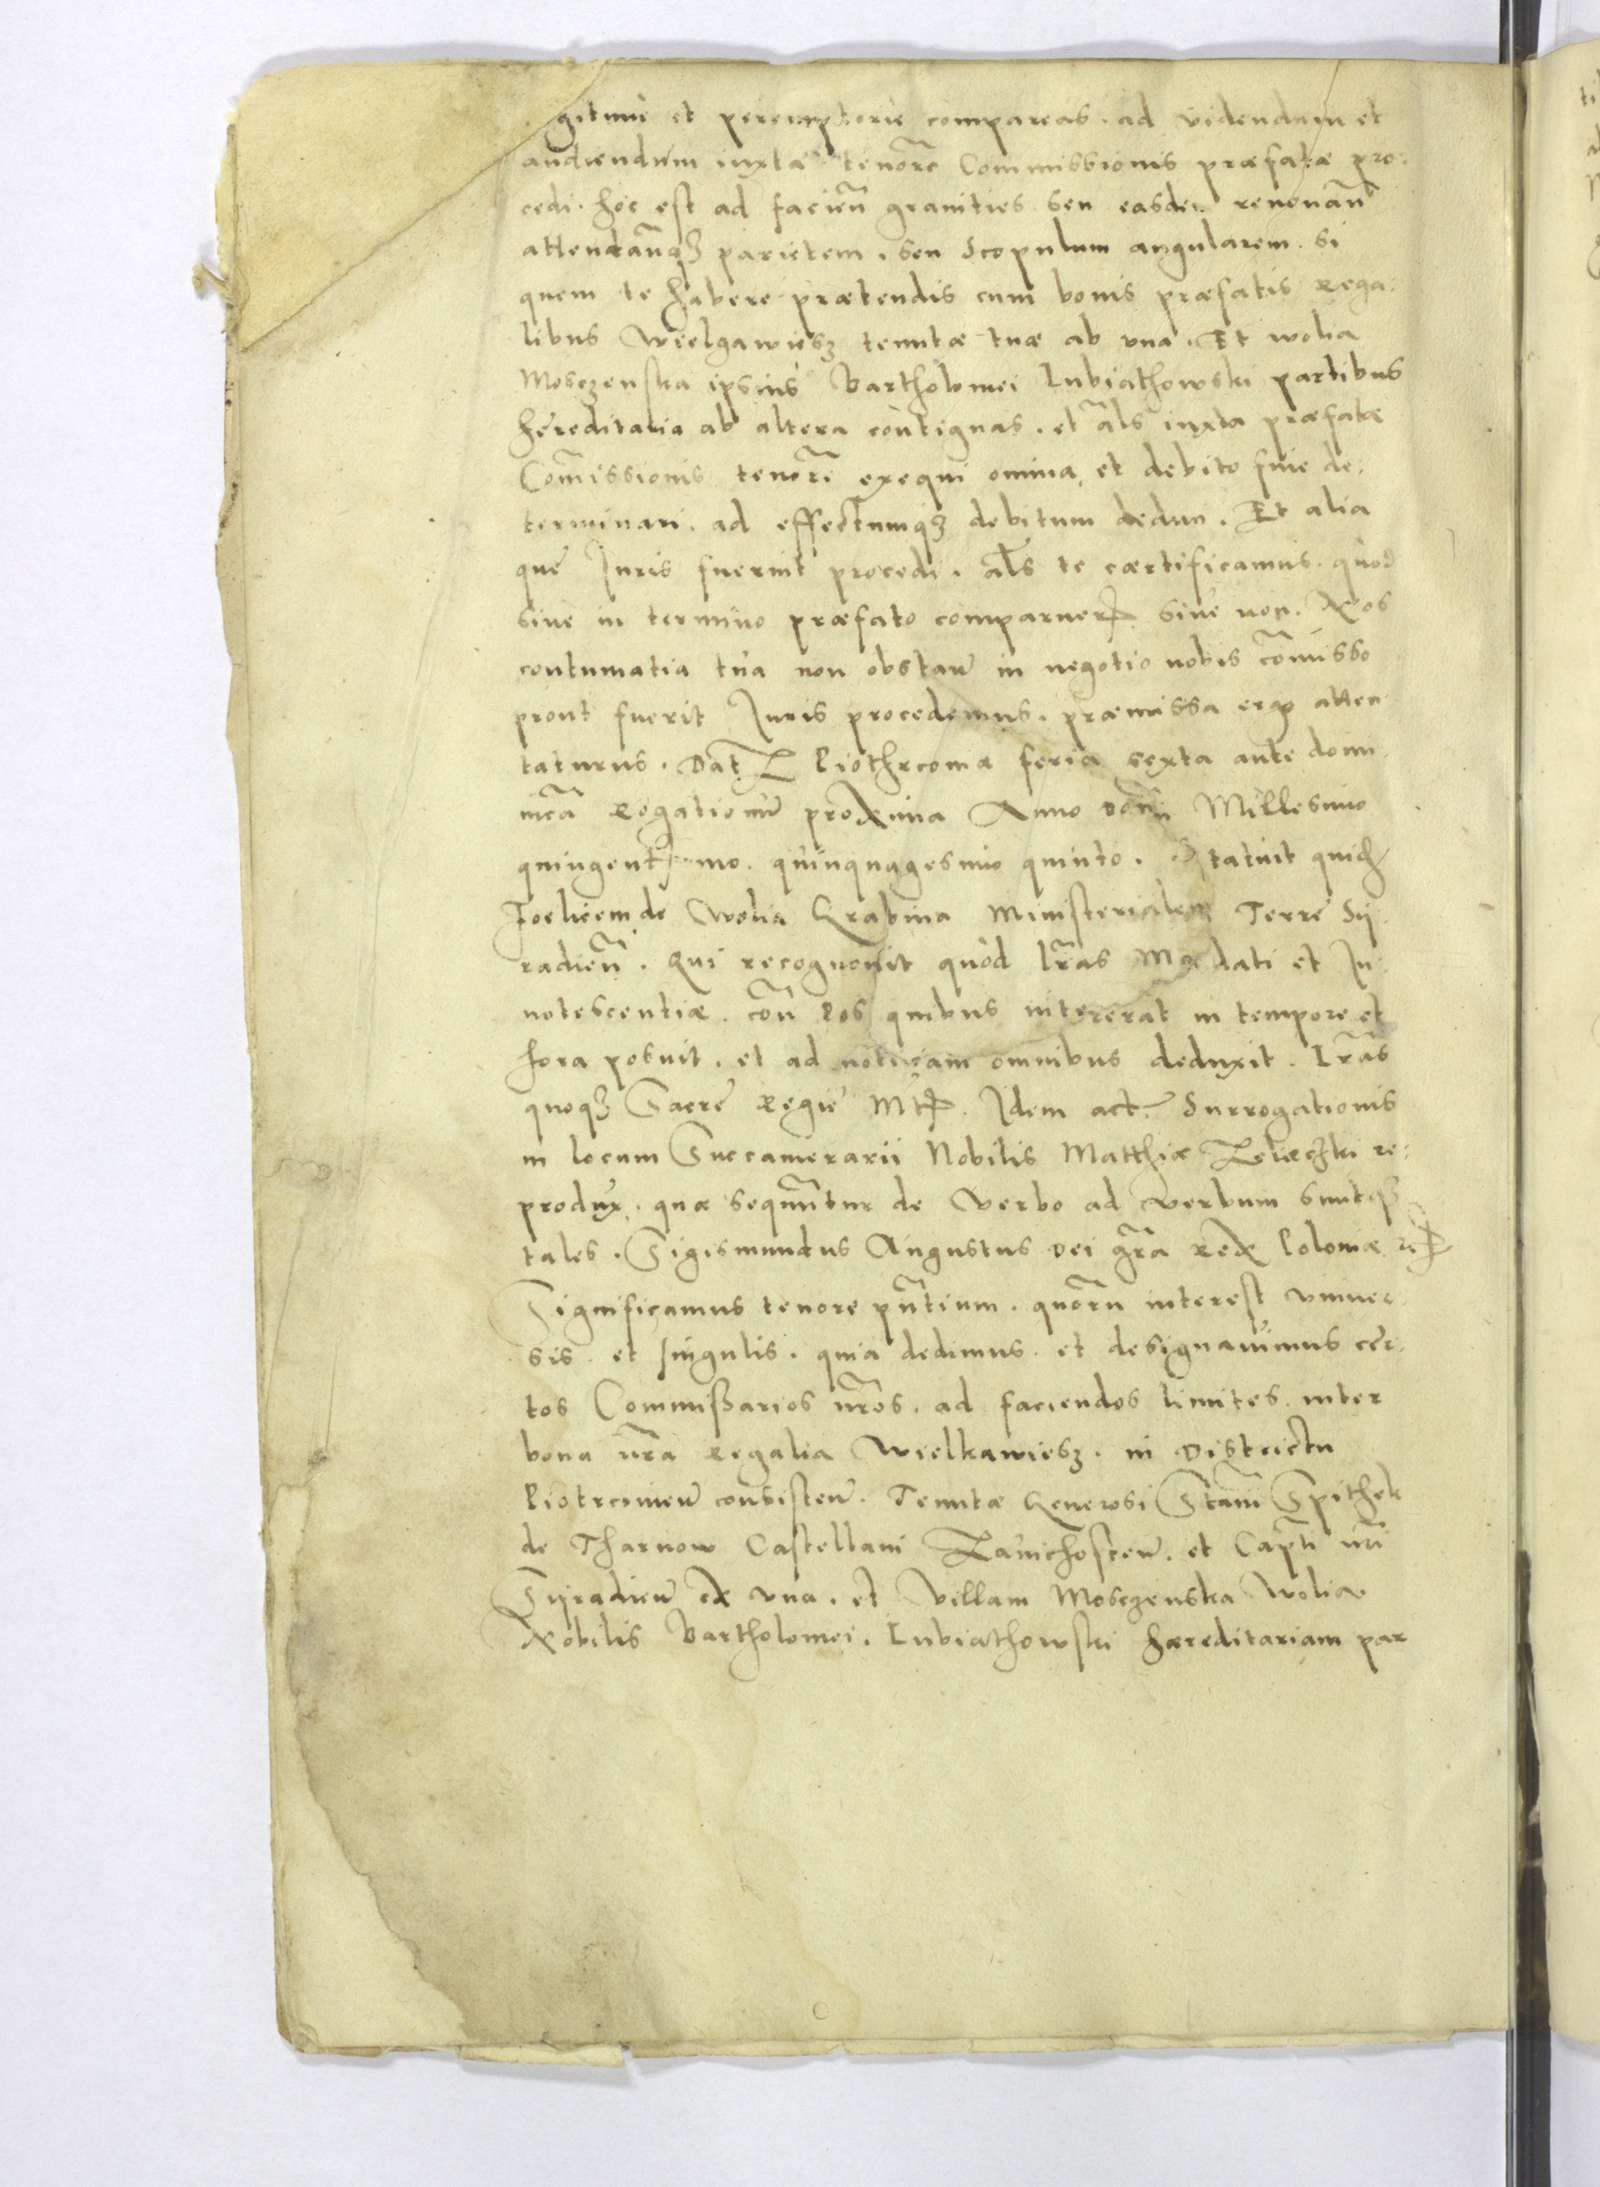 gitime et peremptorie compareas. ad videndum et
audiendum iuxta tenore Commissionis præfatæ pro:
cedi. hoc est ad facien̄ granities seu easdem renouan̄
attendan̄qз parietem. seu Scopulum angularem. si
quem te habere prætendis cum bonis præfatis Rega:
libus Wielgawiesz tenutæ tuæ ab vna. Et wolia
Mosczenska ipsius Bartholomei Lubiathowski partibus
hereditaria ab altera contiguas. et al̄s iuxta præfatæ
Com̄issionis tenorē exequi omnia et debito fine de:
terminari. ad effectumqз debitum deduci. Et alia
que Iuris fuerint procedi. al̄s te cærtificamus. quod
siue in termino præfato comparueris siue non. Nos
contumatia tua non obstan̄ in negotio nobis com̄isso
prout fuerit Iuris procedemus. præmissa ergo atten
taturus. Dat Piothrcoviæ feria sexta ante domi
nicā Rogationū proxima Anno Domi Millesimo
quingentesimo. quinquagesimo quinto. Statuit quidem
Foelicem de Wolia Grabina Ministerialem Terre Sij:
radien̄. Qui recognouit quod lr̄as Mandati et In:
notescentiæ. con̄ eos quibus intererat in tempore et
hora posuit. et ad noticiam omnibus deduxit. Lr̄as
quoqз Sacre Regie Mtis. Idem act. Surrogationis
in locum Succamerarii Nobilis Matthiæ re:
produx. quæ sequuntur de verbo ad verbum suntqз
tales. Sigismundus Augustus Dei gr̄a Rex Poloniæ etc
Significamus tenore pn̄tium. quoru interest vniuer
sis. et singulis. quia dedimus. et designauimus cer:
tos Commissarios nr̄os. ad faciendos limites. inter
bona nr̄a Regalia Wielkawiesz. in Districtu
Piotrcouien̄ consisten̄. Tenutæ Generosi Stani Spithek
de Tharnow Castellani Zawichosten̄. et Capti nr̄i
Syradien̄ ex vna. et Villam Mosczenska Wolia
Nobilis Bartholomei. Lubiathowski hæreditariam par